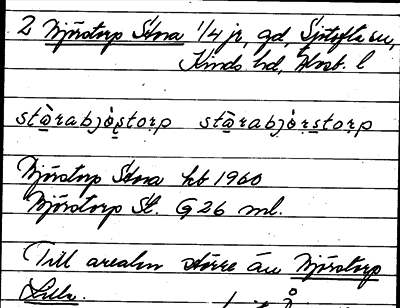 2 Björstorp Stora 1/4 jr, gd, Sjötofta sn,
Kinds hd, Älvsb. l
stòrabjò̀storp stòrabjòrstorp
Björstorp Stora kb 1960
Björstorp St. G 26 ml.
Till arealen större än Björstorp
Lilla.